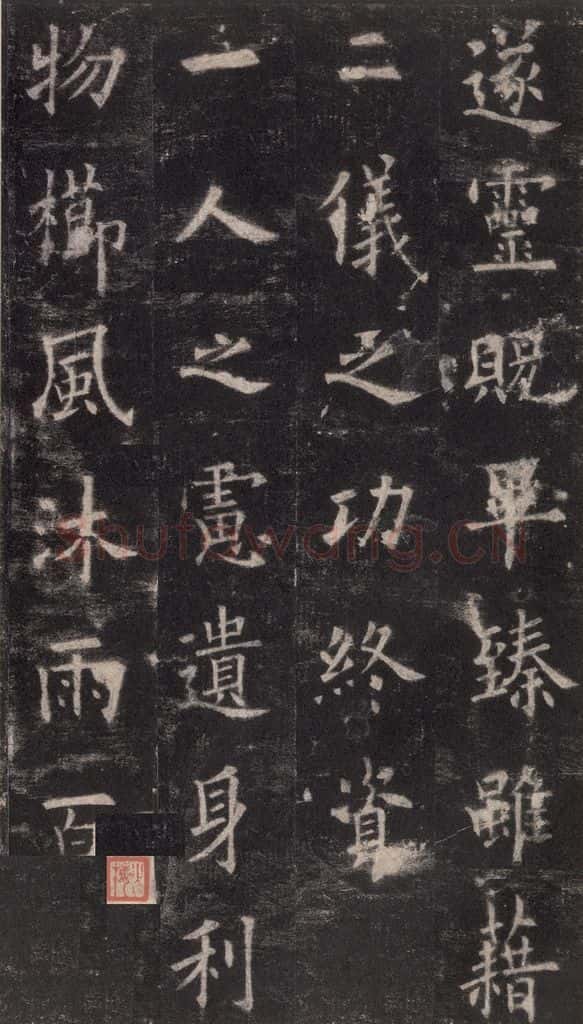 遂靈貺畢臻雖藉
二儀之功終資
一人之慮遺身利
物櫛風沐雨百
shufawang.CN